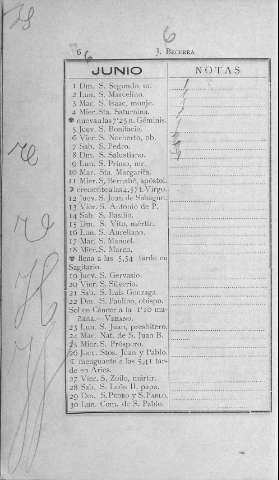 6
6 6 J. Becerra
JUNIO NOTAS
1 Dm. S. Segundo, m.
2 Lun. S. Marcelino.
3 Mar. S. Isaac, monje.
4 Mier. Sta. Saturnina.
nueva a las 7'25 n. Géminis.
5 Juev. S. Bonifacio.
6 Vier. S. Norberto, ob.
7 Sab. S. Pedro.
8 Dm. S. Salustiano.
9 Lun. S. Primo, mr.
10 Mar. Sta. Margarita.
11 Mier. S. Bernabé, apóstol.
creciente a las 4,57 t. Virgo.
12 Juev. S. Juan de Sahagún.
13 Vier. S. Antonio de P.
14 Sab. S. Basilio.
15 Dm. S. Vito, mártir.
16 Lun. S. Aureliano.
17 Mar. S. Manuel.
18 Mier. S. Marco.
llena a las 5,54 tarde en
Sagitario.
19 Juev. S. Gervasio.
20 Vier. S. Silverio.
21 Sab. S. Luis Gonzaga.
22 Dm. S. Paulino, obispo.
Sol en Cáncer a la 1'20 ma-
ñana.—Verano.
23 Lun. S. Juan, presbítero.
24 Mar. Nat. de S. Juan B.
25 Mier. S. Próspero.
26 Juev. Stos. Juan y Pablo.
menguante a las 5,41 tar-
de en Aries.
27 Vier. S. Zoilo, mártir.
28 Sab. S. León II, papa.
29 Dm. S. Pedro y S. Pablo.
30 Lun. Com. de S. Pablo.